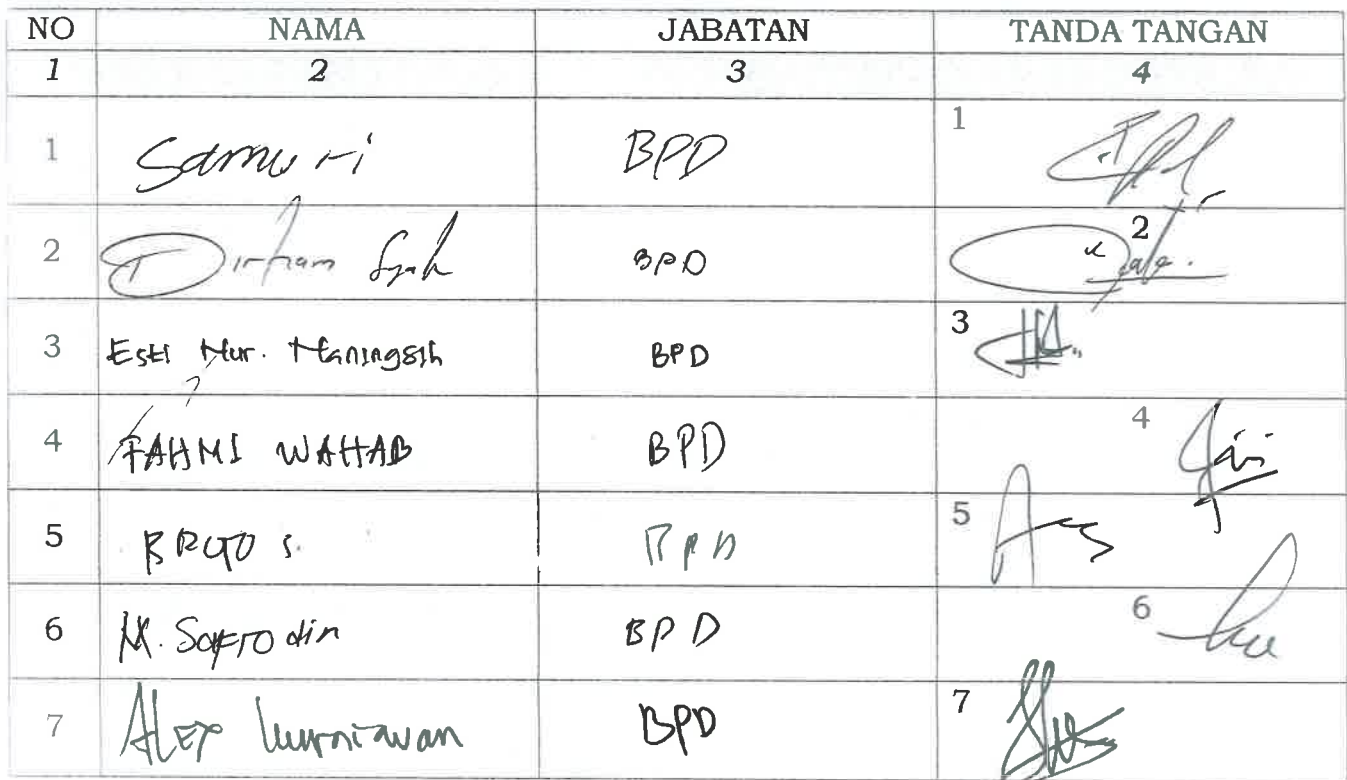 NO NAMA JABATAN TANDA TANGAN
1 2 3 4
1 Samuri BPD 1
2 Dirham Syah BPD 2
3 Esti Nur. Naningsih BPD 3
4 FAHMI WAHAB BPD 4
5 S. BPD 5
6 M. Safrodin BPD 6
7 ALEX kurniawan BPD 7